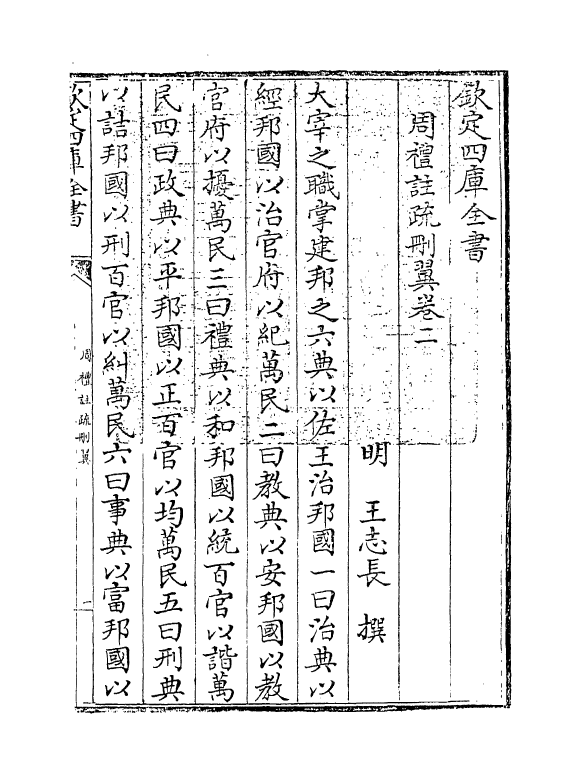 欽定四庫全書
周禮註疏刪翼卷二
明 王志長 撰
大宰之職掌建邦之六典以佐王治邦國一曰治典以
經邦國以治官府以紀萬民二曰教典以安邦國以教
官府以擾萬民三曰禮典以和邦國以統百官以諧萬
民四曰政典以平邦國以正百官以均萬民五曰刑典
以詰邦國以刑百官以糾萬民六曰事典以富邦國以
欽定四庫全書
周禮註疏刪翼
一